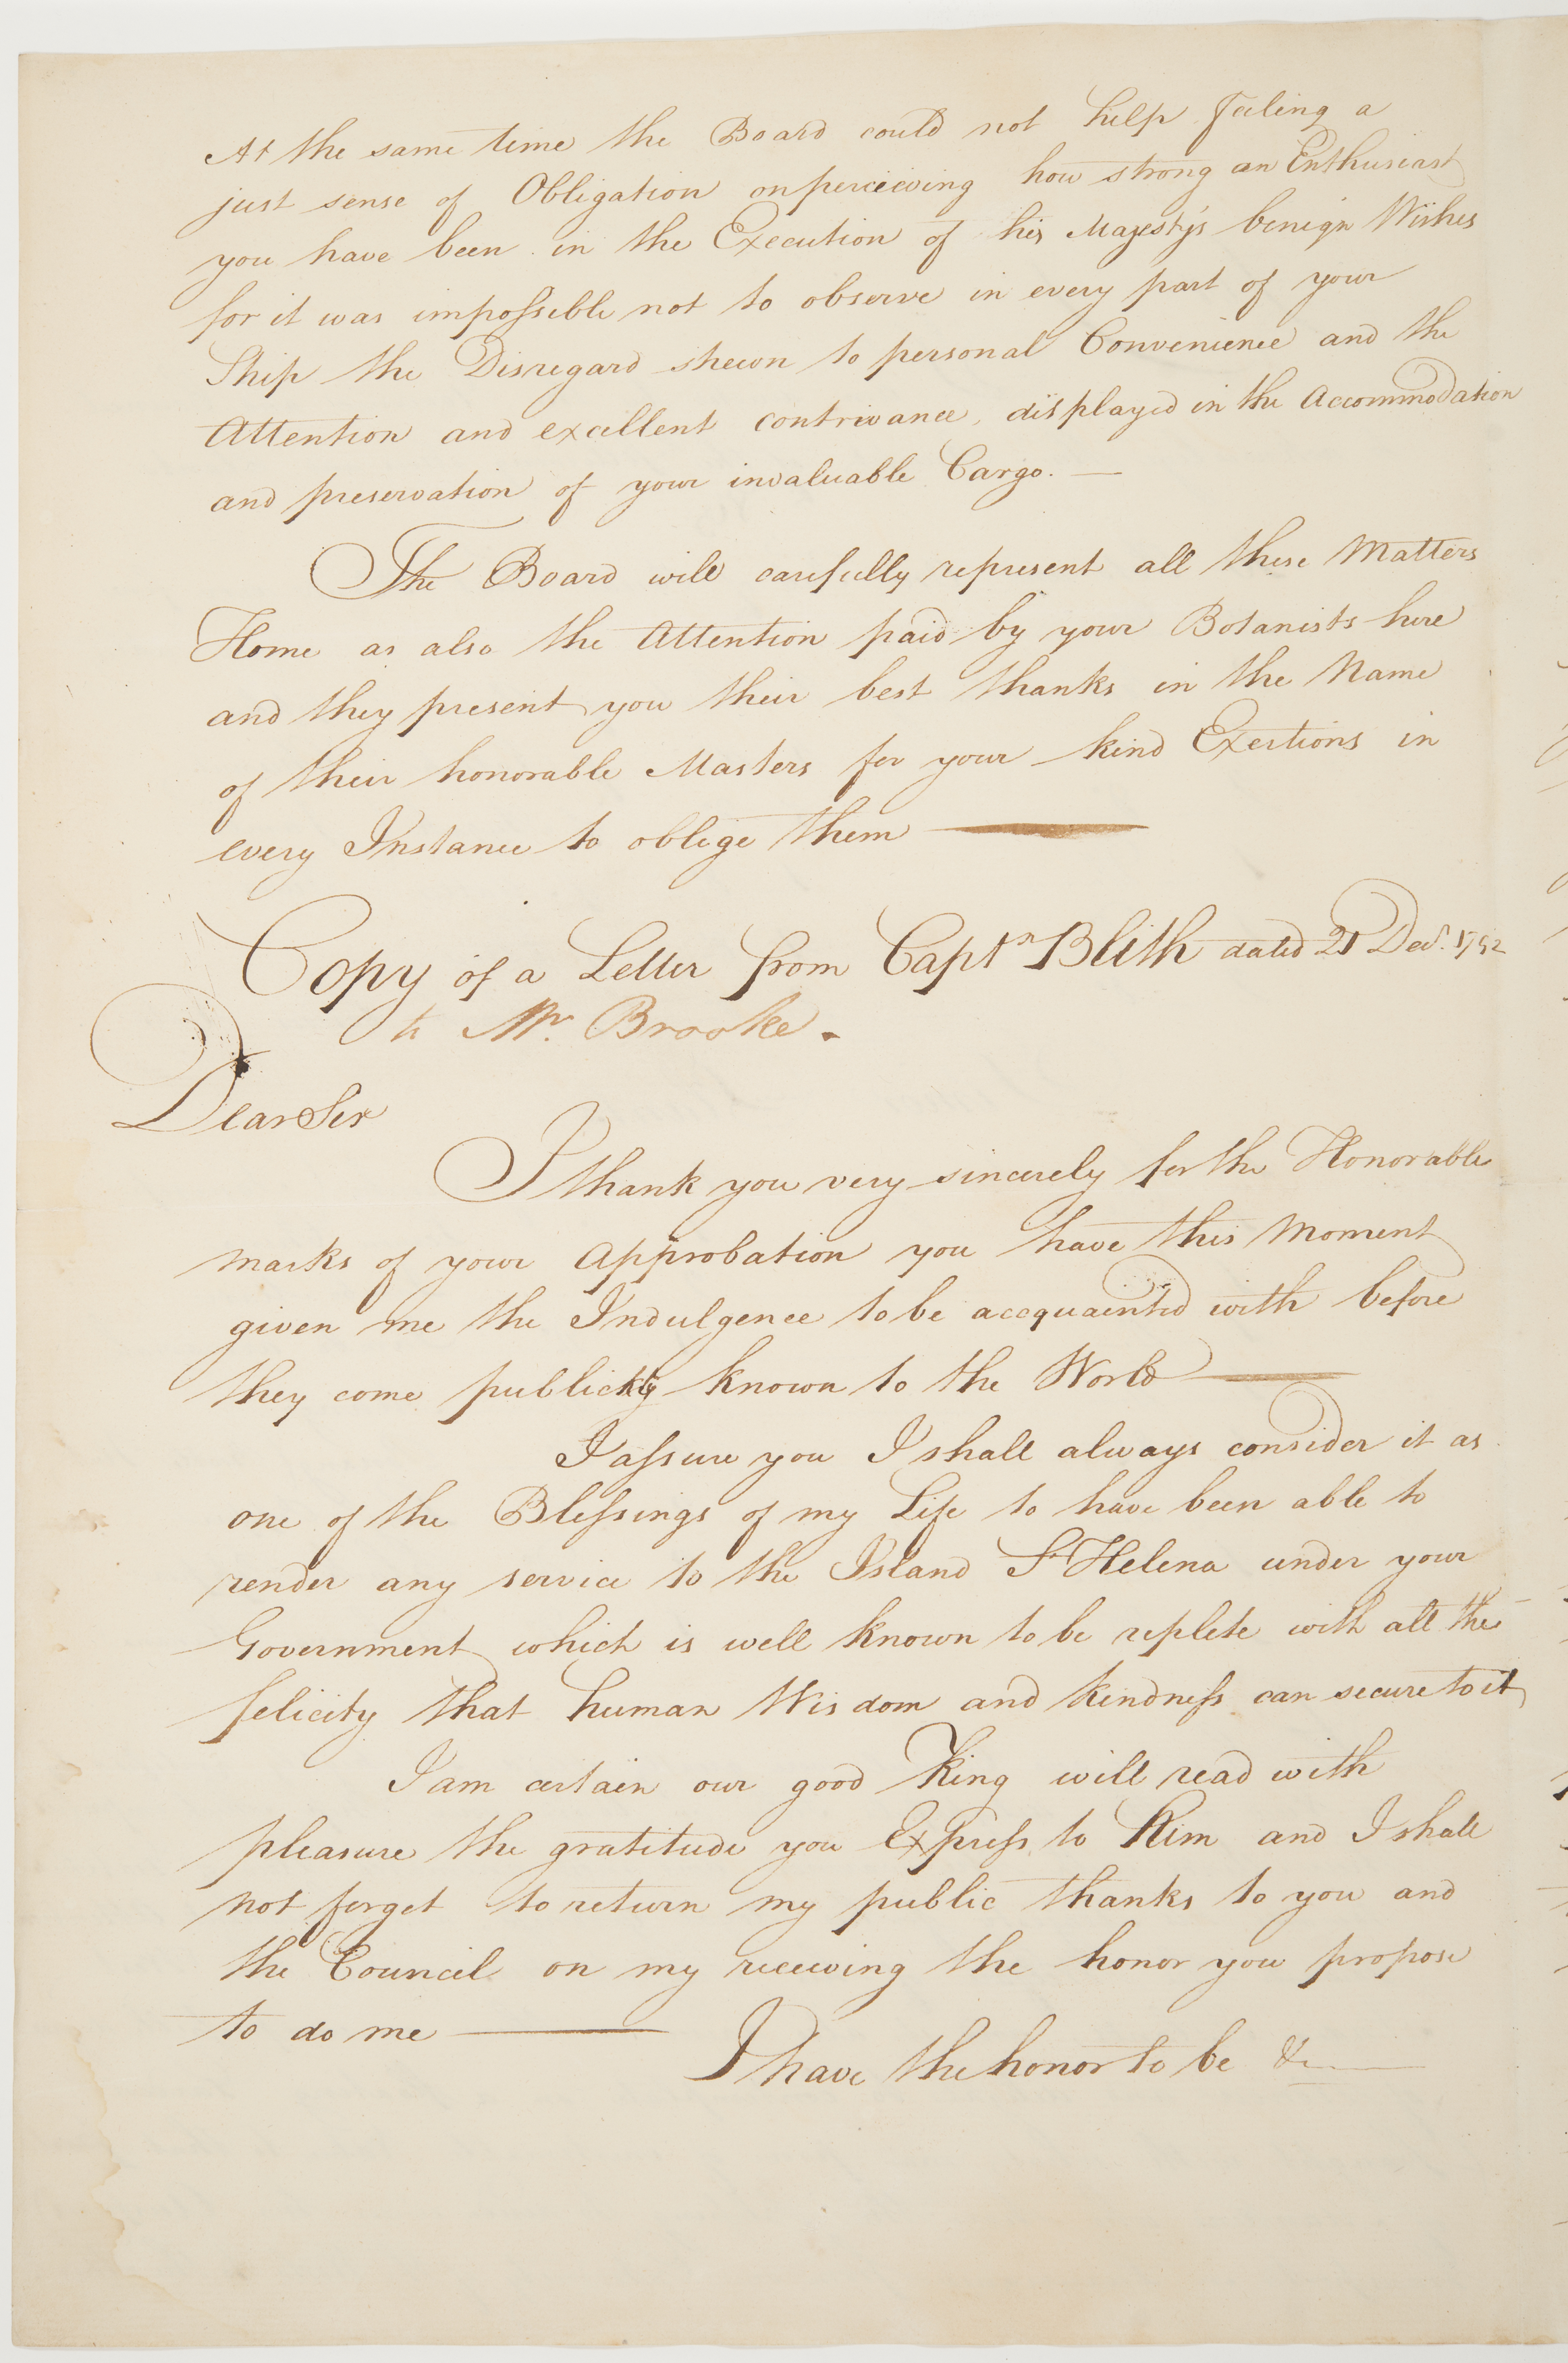 At the same time the Board could not help feeling a
just sense of Obligation on perceiving how strong an Enthusiast
you have been in the Execution of his Majesty's benign Wishes
for it was impossible not to observe in every part of your
Ship the Disregard shewn to personal Convenience and the
Attention and excellent contrivance, displayed in the Accommodation
and preservation of your invaluable Cargo. —
The Board will carefully represent all these Matters
Home as also the Attention paid by your Botanists here
and they present you their best thanks in the Name
of their honorable Masters for your kind Exertions in
every Instance to oblige them —
Copy of a Letter from Captn Blith dated 21 Decr. 1792
to Mr. Brooke.
Dear Sir
I thank you very sincerely for the Honorable
marks of your Approbation you have this Moment
given me the Indulgence to be accquainted with before
they come publickly known to the World —
I assure you I shall always consider it as
one of the Blessings of my Life to have been able to
render any service to the Island St Helena under your
Government which is well known to be replete with all the
felicity that human Wisdom and kindness can secure to it
I am certain our good King will read with
pleasure the gratitude you Express to Him and I shall
not forget to return my public thanks to you and
the Council on my receiving the honor you propose
to do me —
I have the honor to be &c —